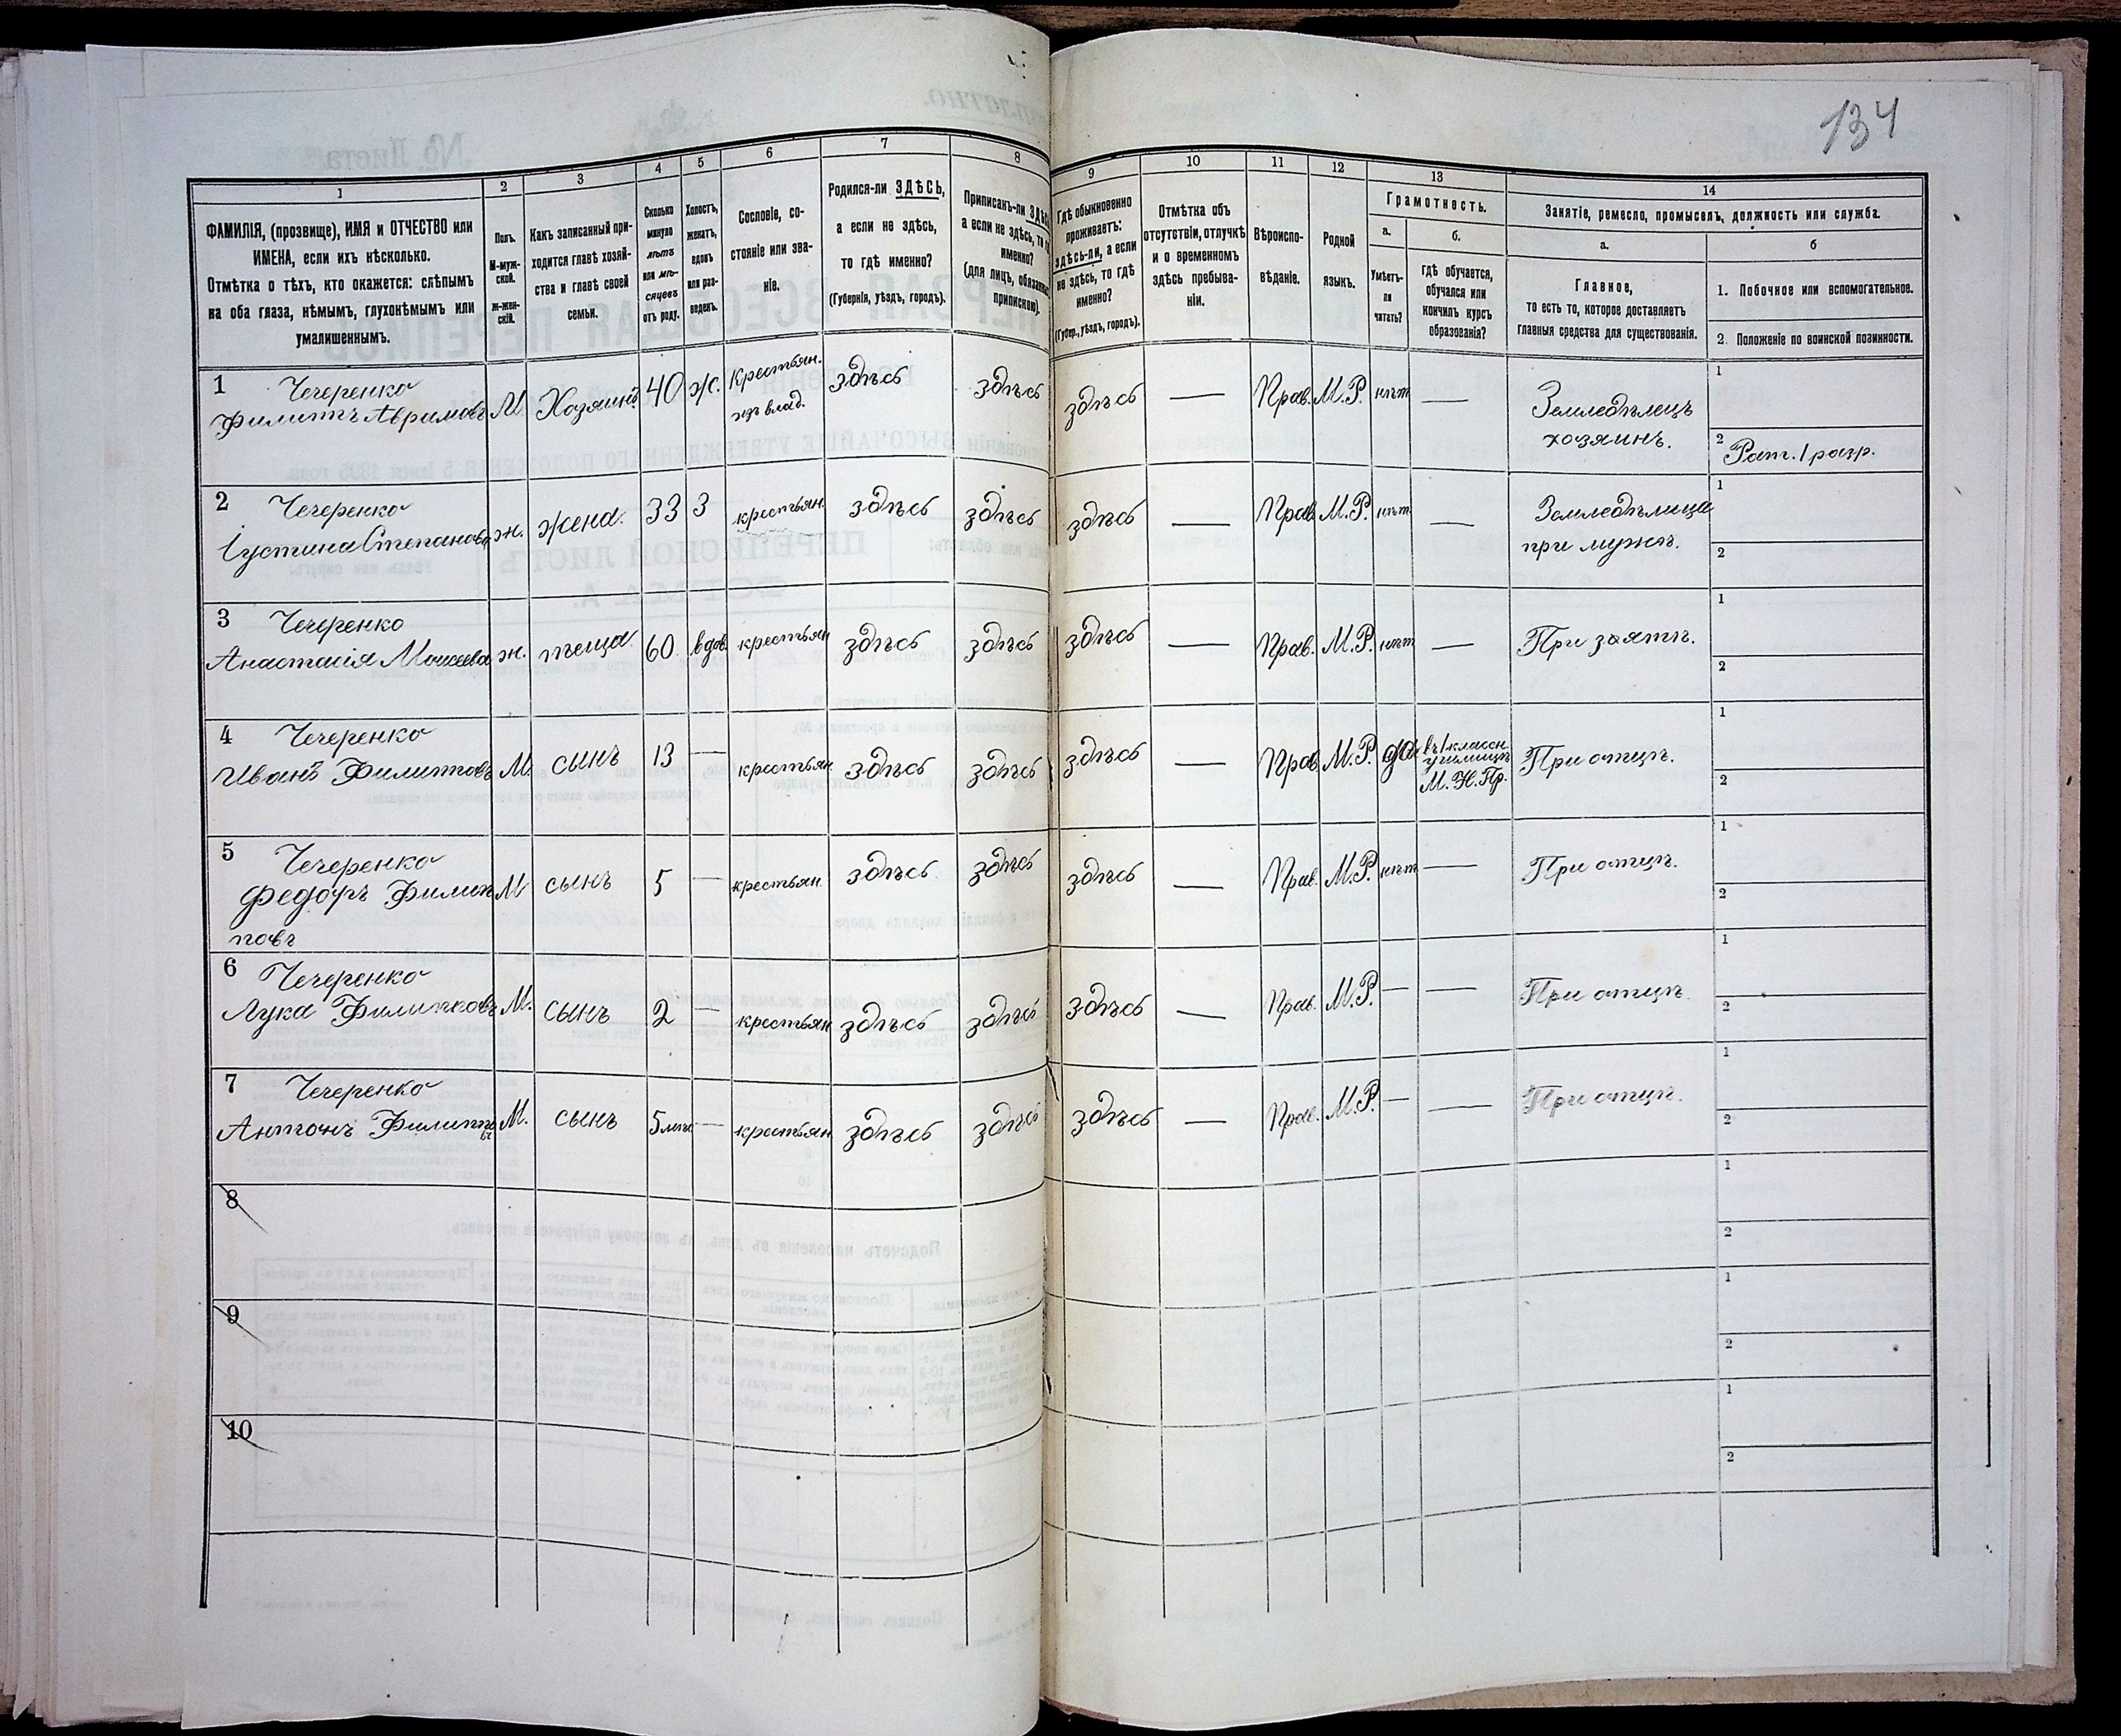 134
1
2
3
4
5
6
7
8
9
10
11
12
13
14
ФАМИЛІЯ, (прозвище), ИМЯ и ОТЧЕСТВО или
ИМЕНА, если ихъ нѣсколько.
Отмѣтка о тѣхъ, кто окажется: слѣпымъ
на оба глаза, нѣмымъ, глухонѣмымъ или
умалишеннымъ.
Полъ.
М-муж-
ской.
Ж-жен-
скій.
Какъ записанный при-
ходится главѣ хозяй-
ства и главѣ своей
семьи.
Сколько
минуло
лѣтъ
или мѣ-
сяцевъ
отъ роду.
Холостъ,
женатъ,
вдовъ
или раз-
веденъ.
Сословіе, со-
стояніе или зва-
ніе.
Родился-ли ЗДѢСЬ,
а если не здѣсь,
то гдѣ именно?
(Губернія, уѣздъ, городъ).
Приписанъ-ли
а если не здѣсь,
именно?
(для лицъ,
припискою).
Гдѣ обыкновенно
проживаетъ:
здѣсь-ли, а если
не здѣсь, то гдѣ
именно?
(Губер., уѣздъ, городъ).
Отмѣтка объ
отсутствіи, отлучкѣ
и о временномъ
здѣсь пребыва-
ніи.
Вѣроиспо-
вѣданіе.
Родной
языкъ.
Грамотность.
а.
Умѣетъ-
ли
читать?
б.
гдѣ обучается,
обучался или
кончилъ курсъ
образованія?
Занятіе, ремесло, промыселъ, должность или служба.
а.
Главное,
то есть то, которое доставляетъ
главныя средства для существованія.
б
1. Побочное или вспомогательное.
2. Положеніе по воинской повинности.
1 Чечеренко
Филиппъ Аврамовъ М Хозяинъ 40 ж. Крестьян. изъ влад. здѣсь здѣсь здѣсь — Прав. М.Р. нѣтъ — Земледѣлецъ хозяинъ. 1
2 Рат. 1 разр.
2 Чечеренко
Іустина Степанова ж. жена. 33 З крестьян. здѣсь здѣсь здѣсь — Прав. М.Р. нѣт — Земледѣлица при мужѣ. 1
2
3 Чечеренко
Анастасія Моисеева ж. теща. 60 вдов. крестьян здѣсь здѣсь здѣсь — Прав. М.Р. нѣт — При зятѣ. 1
2
4 Чечеренко
Иванъ Филипповъ М. сынъ 13 — крестьян. здѣсь здѣсь здѣсь — Прав. М.Р. да въ 1 классн. училищѣ М. Н. Пр. При отцѣ. 1
2
5 Чечеренко
Федоръ Филип М сынъ 5 — крестьян. здѣсь здѣсь здѣсь — Прав. М.Р. нѣт — При отцѣ. 1
повъ 2
6 Чечеренко
Лука Филипповъ М. сынъ 2 — крестьян здѣсь здѣсь здѣсь — Прав. М.Р. — — При отцѣ. 1
2
7 Чечеренко
Антонъ Филипповъ М. сынъ 5 — крестьян здѣсь здѣсь здѣсь — Прав. М.Р. — — При отцѣ. 1
2
8 1
2
9 1
2
10 1
2